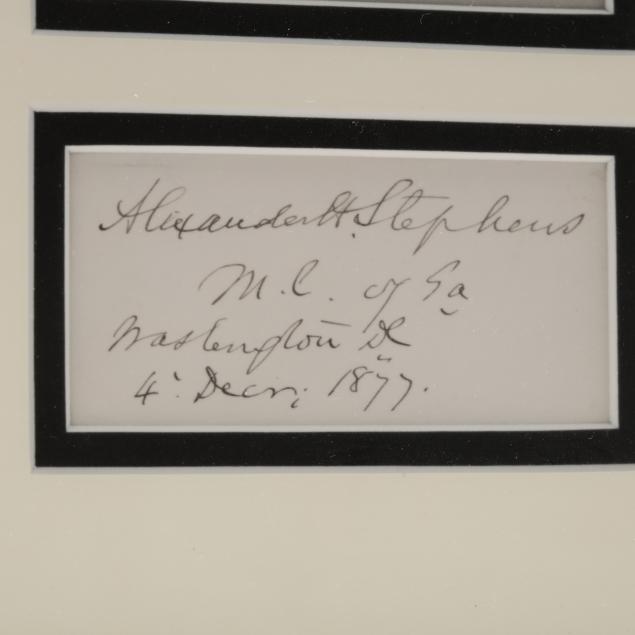 Alexander H. Stephens
M.C. of Ga
Washington DC
4. Decr; 1877.